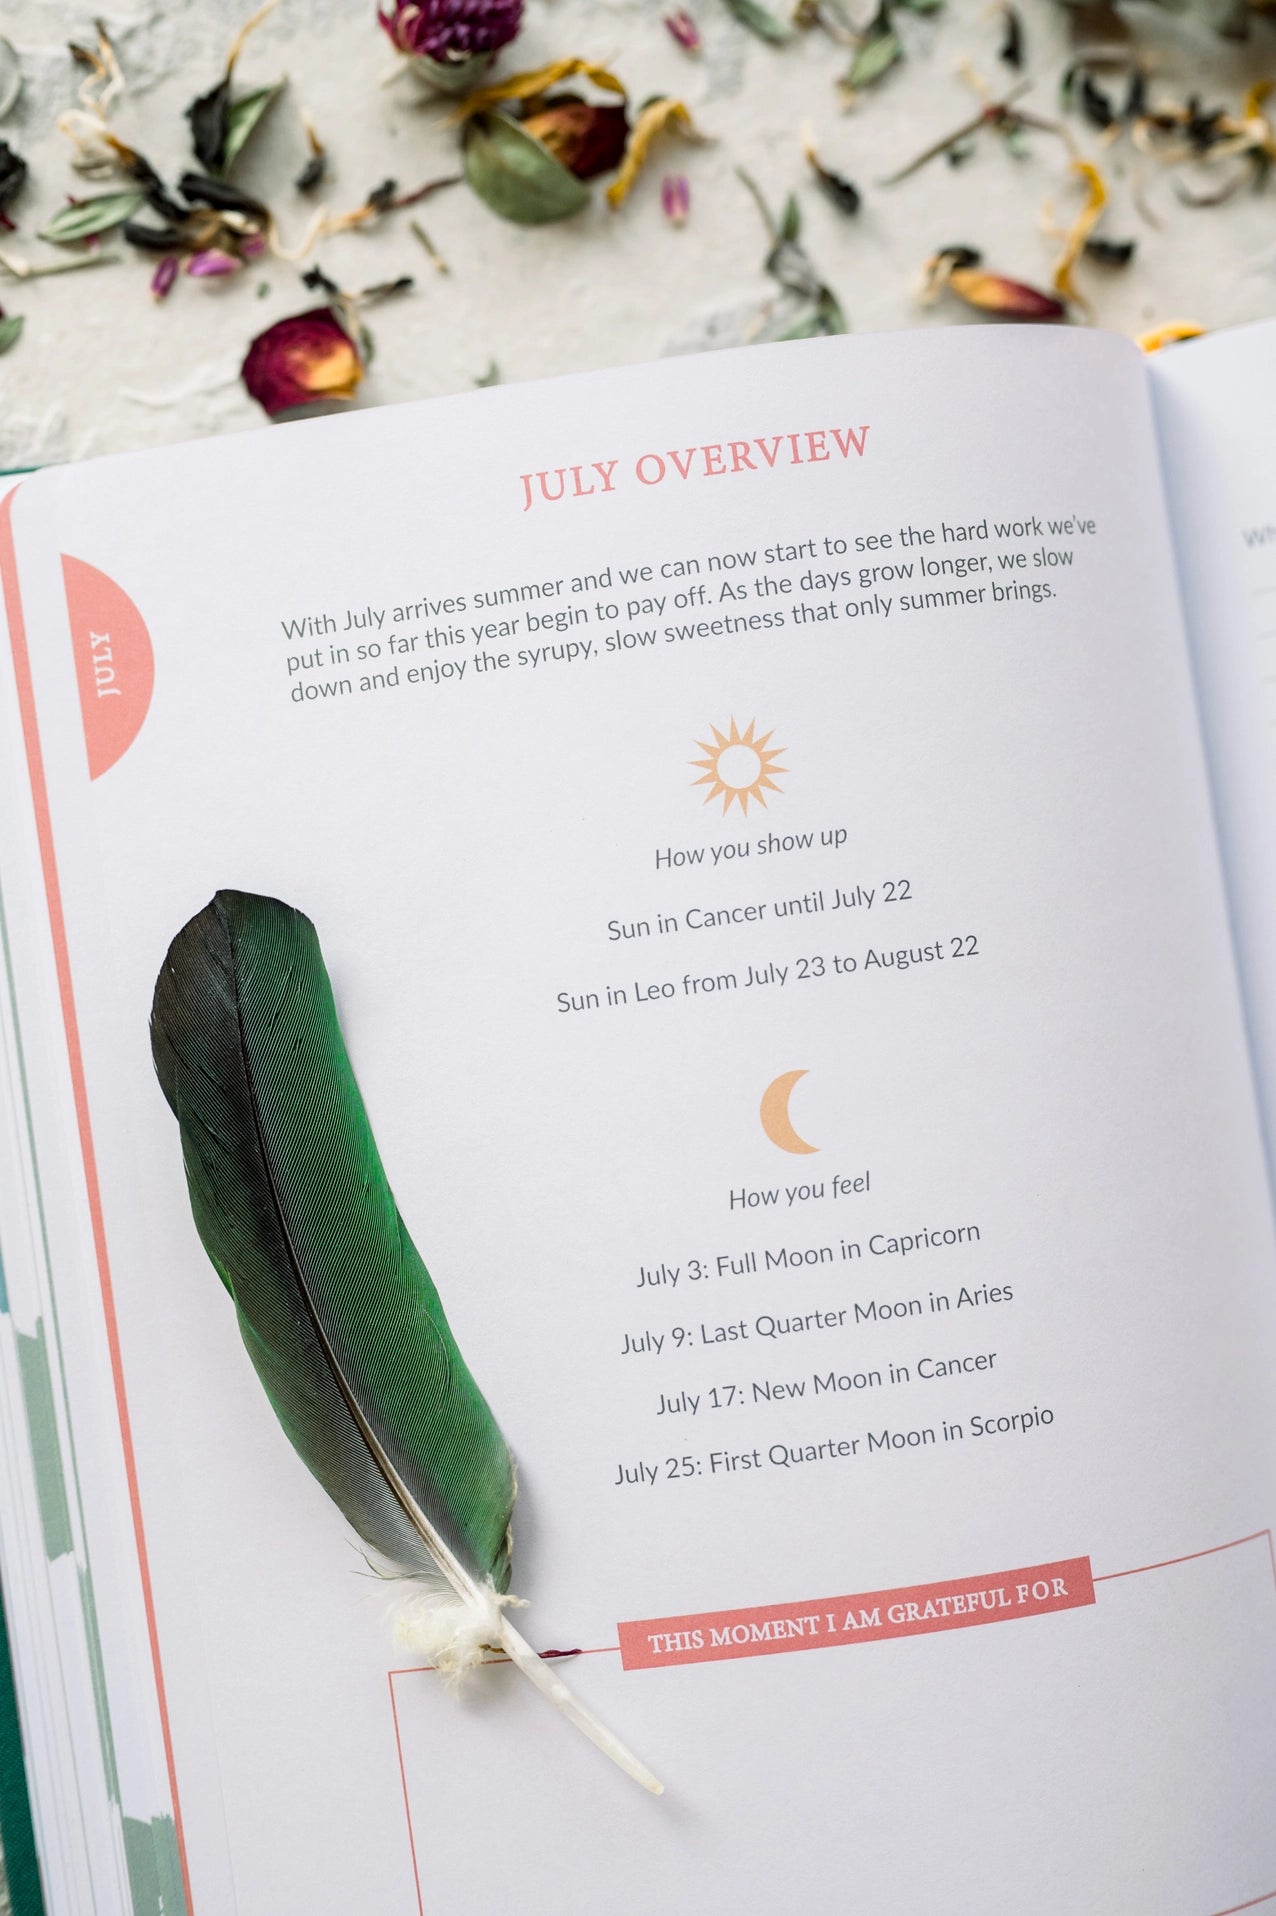 JULY OVERVIEW
With July arrives summer and we can now start to see the hard work we've
put in so far this year begin to pay off. As the days grow longer, we slow
down and enjoy the syrupy, slow sweetness that only summer brings.
JULY
How you show up
Sun in Cancer until July 22
Sun in Leo from July 23 to August 22
How you feel
July 3: Full Moon in Capricorn
July 9: Last Quarter Moon in Aries
July 17: New Moon in Cancer
July 25: First Quarter Moon in Scorpio
THIS MOMENT I AM GRATEFUL FOR